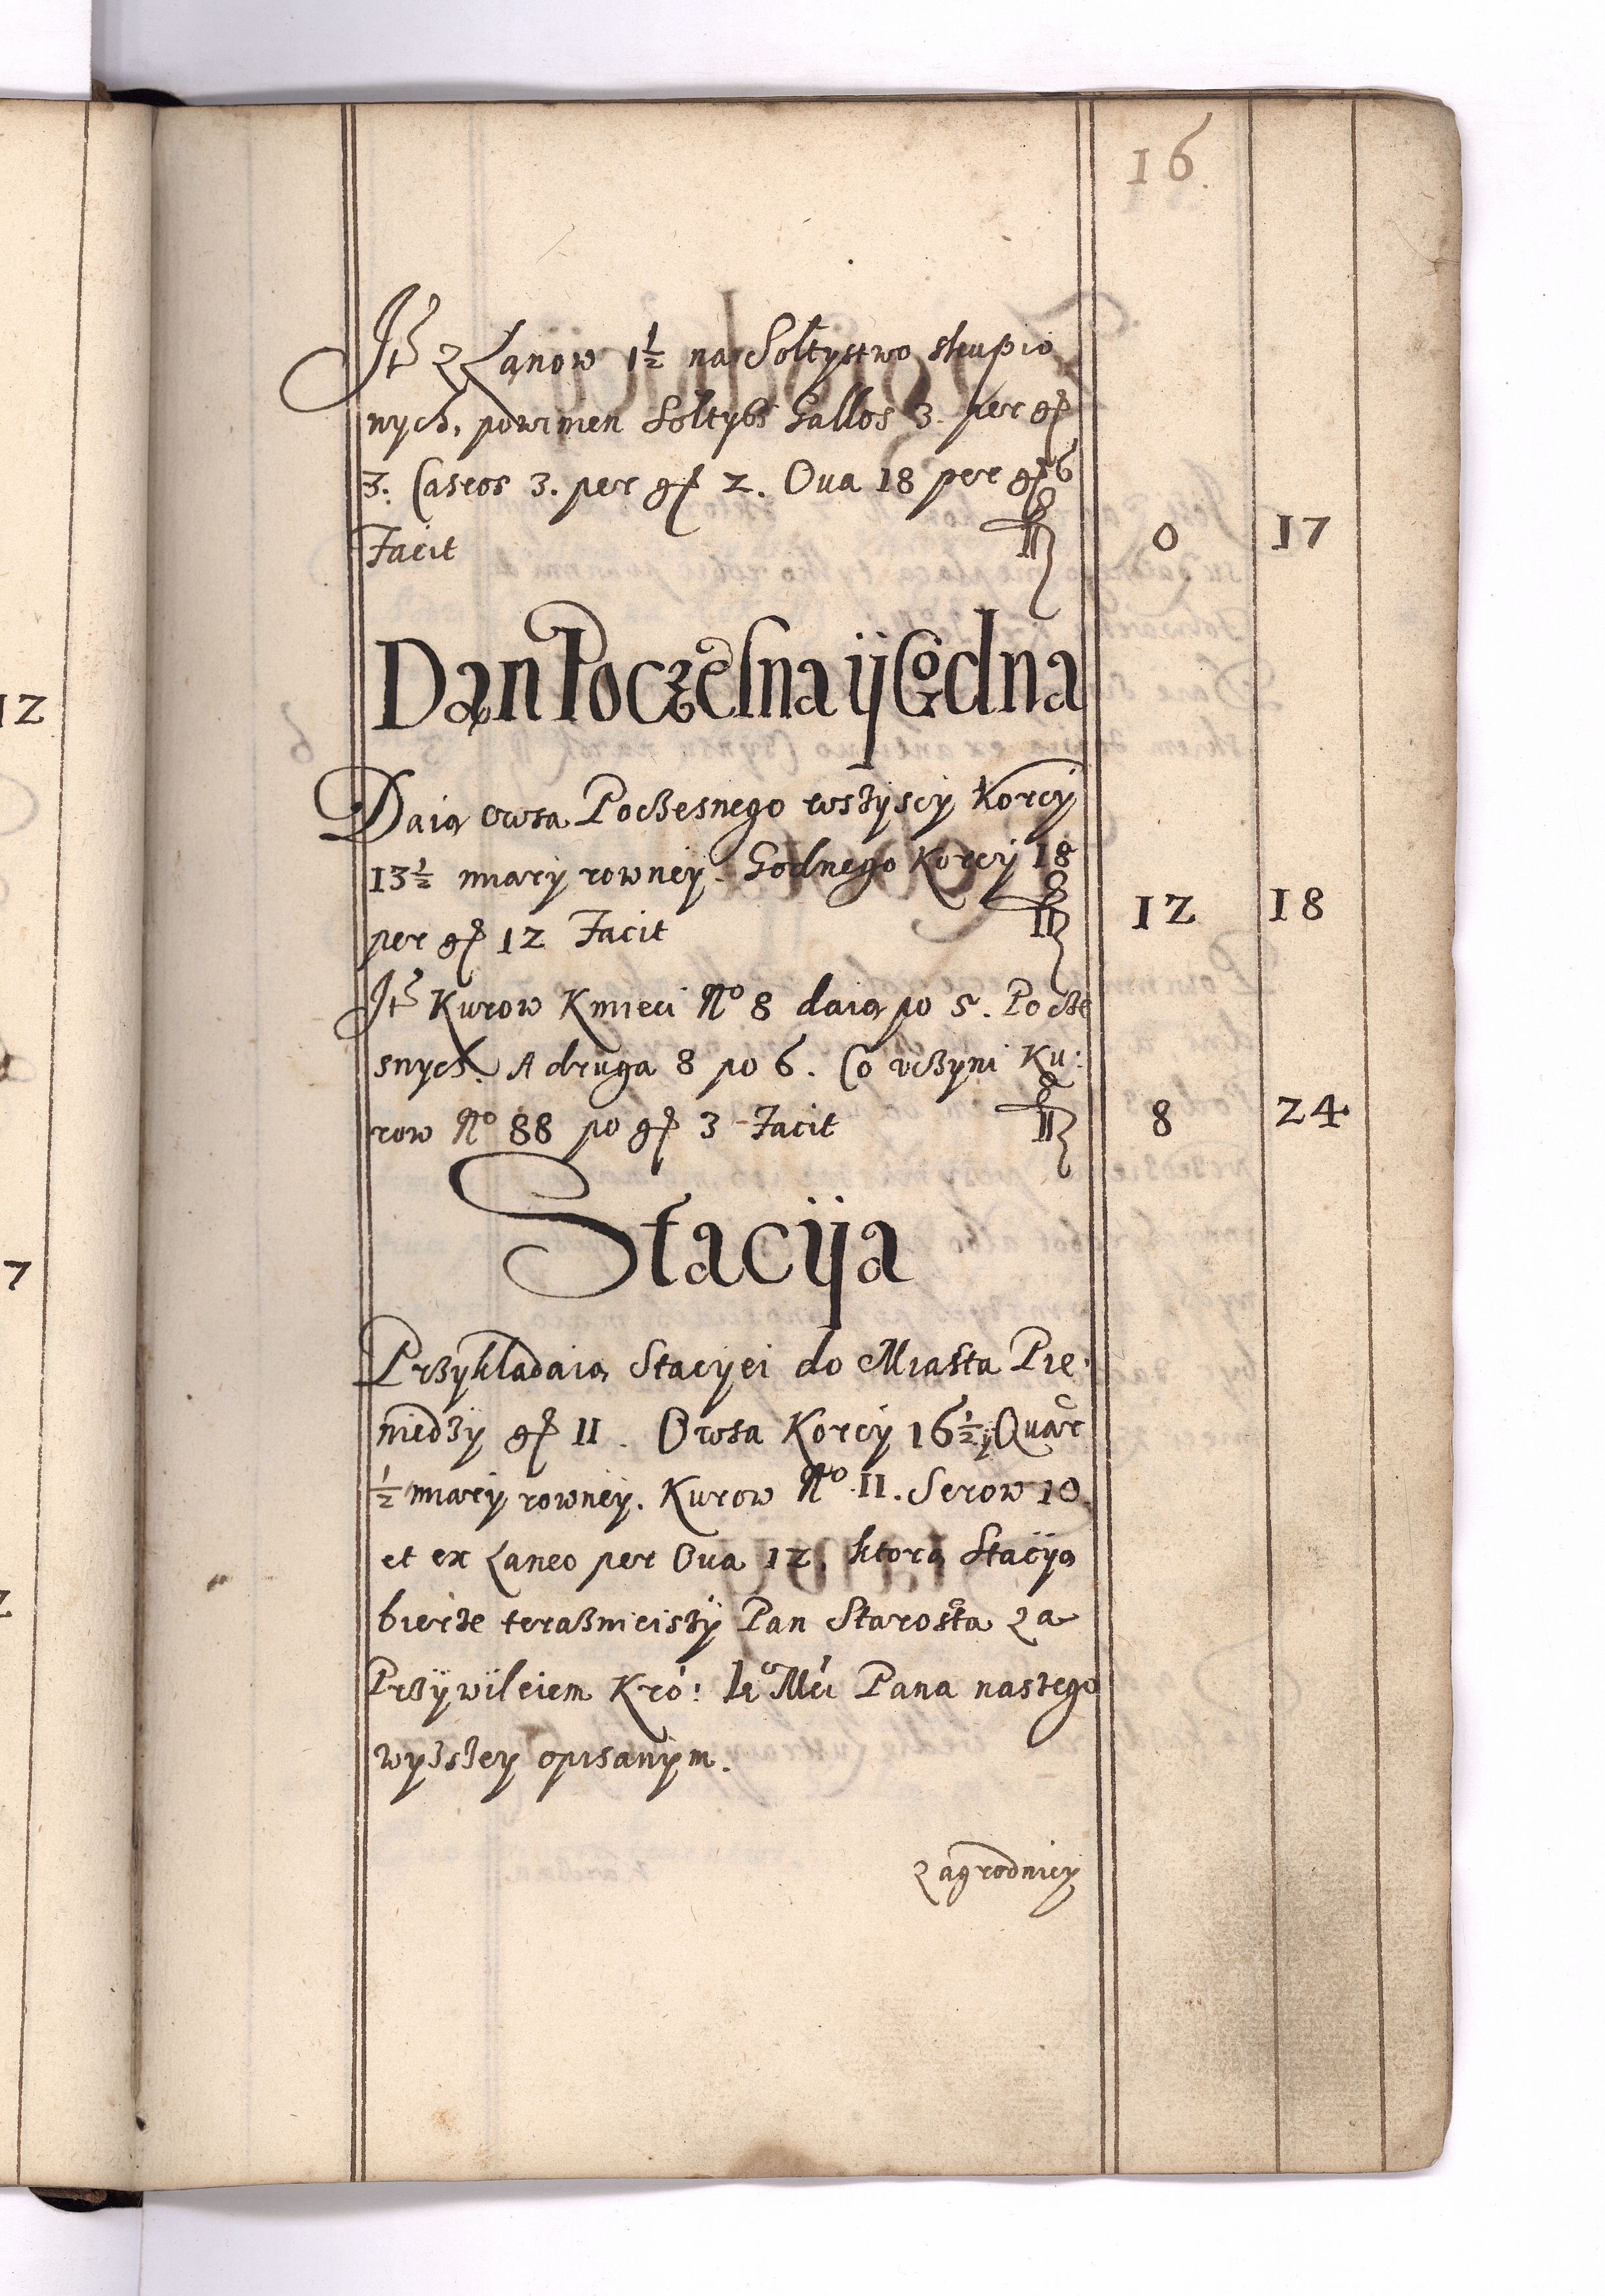 16.
Itẽ z Łanow 1½ na Sołtystwo skupio
nych, powinien Sołtys Gallos 3. per gr
3. Caseos 3. per gr 2. Oua 18 per gr 6
Facit fl 0 17
Dan Poczesna ij Godna
Daią owsa Poczesnego wszyscy Korcy
13½ miary rowney. Godnego Korcy 18
per gr 12 Facit fl 12 18
Itẽ Kurow Kmieci No 8 daią po 5. Pocze
snych. A druga 8 po 6. Co vczyni Ku:
row No 88 po gr 3 Facit fl 8 24
Stacija
Przykladaią Stacyei do Miasta Pie:
niedzy gr II. Owsa Korcy 16½ ÿ Quar
½ miary rowney. Kurow No II. Serow 10
et ex Laneo per Oua 12. ktorą Stacyą
bierze teraznieiszy Pan Starosta za
Przywileiem Kro: Ie° Mci Pana naszego
wyzszey opisanym.
zagrodnicy
12
7